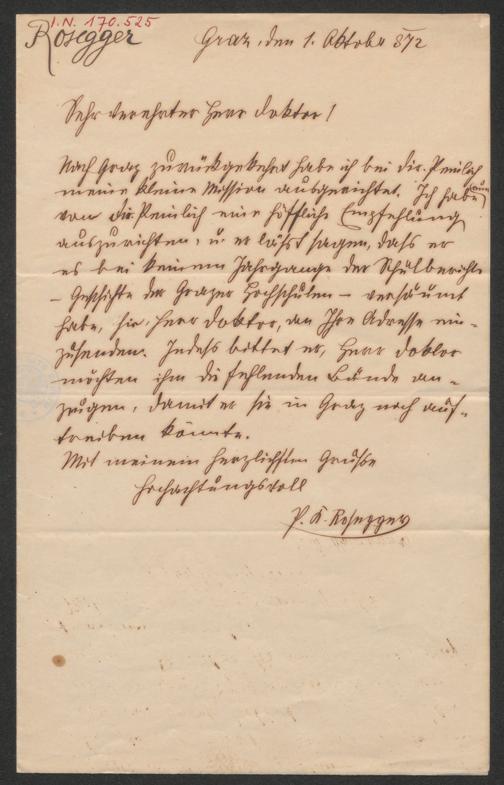 I.N. 170.525
Rosegger
Graz, den 1. Oktober 872
Sehr verehrter Herr Doktor!
Nach Graz zurückgekehrt habe ich bei Dir. Peinlich
meine kleine Mission ausgerichtet. Ich habe nun
von Dir. Peinlich eine höfliche Empfehlung
auszurichten, u. er läßt sagen, daß er
es bei keinem Jahrgange der Schulberichte
– Geschichte der Grazer Hochschulen – versäumt
habe, sie, Herr Doktor, an Ihre Adresse ein-
zusenden. Indeß bittet er, Herr Doktor
möchten ihm die fehlenden Bände an-
zeigen, damit er sie in Graz noch auf-
treiben könnte.
Mit meinem herzlichsten Gruße
hochachtungsvoll
P. K. Rosegger